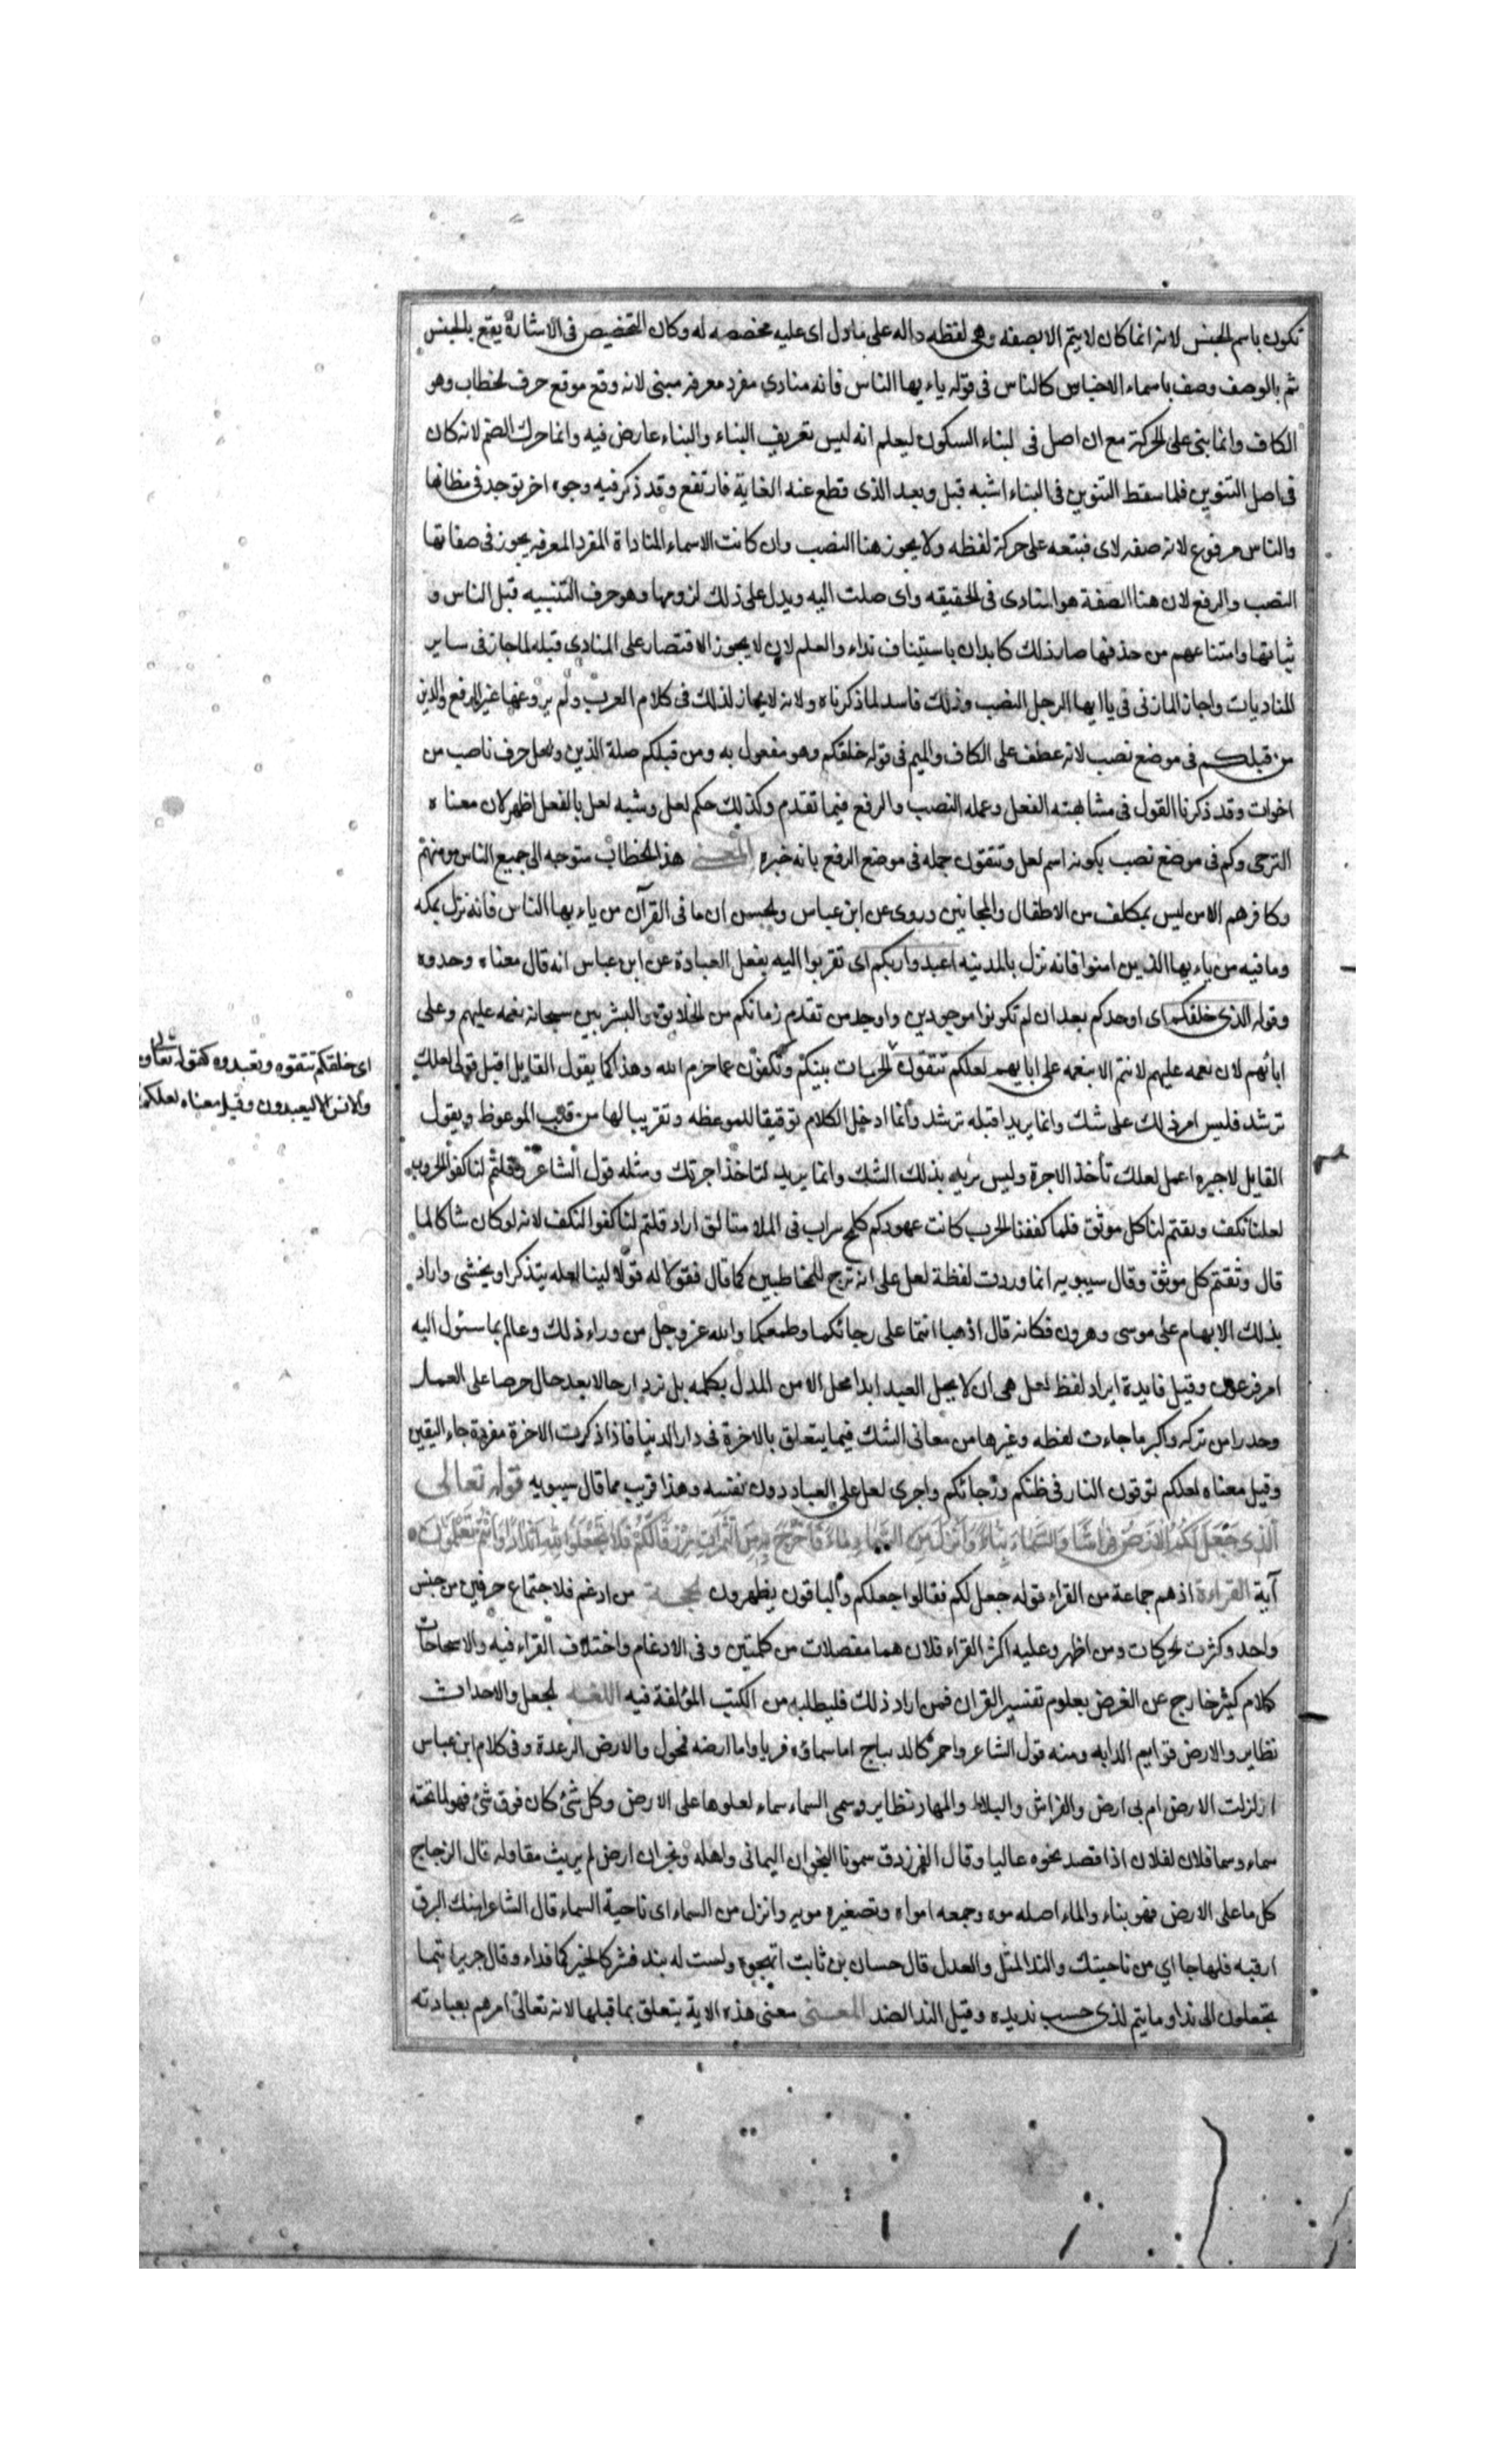 تكون باسم الجنس لانه انما كان لا يتم الا بصفه وهى لفظه داله على ماول اى عليه مخصصه له وكان التخصيص فى الاشارة يقع بالجنس
ثم بالوصف وصف باسماء الاجناس كالناس فى قوله ياءيها الناس فانه منادى مفرد معرفه مبنى لانه وقع موقع حرف لخطاب وهو
الكاف وانما بنى على الحركة مع ان اصل فى لبناء السكون ليعلم انه ليس تعريف البناء والبناء عارض فيه وانما حرك الضم لانه كان
فى اصل التنوين فلما سقط التنوين فى البناء اشبه قبل وبعد الذى قطع عنه الغاية فارتفع وقد ذكر فيه وجوه اخر توجد فى مظانها
والناس مرفوع لانه صفه لاى فبتعه على حركة لفظه ولا يجوز هنا النصب وان كانت الاسماء المناداة المفرد المعرفه يجوز فى صفاتها
النصب والرفع لان هنا الصفة هو المنادى فى الحقيقه واى صلت اليه ويدل على ذلك لزومها وهو حرف التنبيه قبل الناس و
ثباتها وامتناعهم من حذفها صار ذلك كابدان باستيناف نداء والعلم لان لا يجوز الاقتصار على المنادى قبله لما جاز فى ساير
المناديات واجاز المازنى فى يا ايها الرجل النصب وذلك فاسد لما ذكرناه ولانه لا يجاز لذلك فى كلام العرب ولم يرو عنها غير الرفع والذين
من قبلكم فى موضع نصب لانه عطف على الكاف والميم فى قوله خلقكم وهو مفعول به ومن قبلكم صلة الذين ولعل حرف ناصب من
اخوات وقد ذكرنا القول فى مشابهته الفعل وعمله النصب والرفع فيما تقدم وكذلك حكم لعل وشبه لعل بالفعل اظهر لان معناه
الترجى وكم فى موضع نصب بكونه اسم لعل وتتقون جمله فى موضع الرفع بانه خبره المعنى هذا الخطاب متوجه الى جميع الناس مومنهم
وكافرهم الا من ليس بمكلف من الاطفال والمجانين وروى عن ابن عباس ولحسن ان ما فى القرآن من ياءيها الناس فانه نزل بمكه
وما فيه من ياءيها الذين امنوا فانه نزل بالمدينه اعبدوا ربكم اى تقربوا اليه بفعل العبادة عن ابن عباس انه قال معناه وحدوه
وقوله الذى خلقكم اى اوجدكم بعد ان لم تكونوا موجودين واوجد من تقدم زمانكم من الخلايق والبشر بين سبحانه نعمه عليهم وعلى
ابائهم لان نعمه عليهم لا تتم الا بنعمه على ابايهم لعلكم تتقون الحرمات بينكم وتكفون عما حرم الله وهذا كما يقول القايل اقبل قولى لعلك
ترشد فليس امر ذلك على شك وانما يريد اقبله ترشد وانما ادخل الكلام توقيقا للموعظه وتقريبا لها من قلب الموعوظ ويقول
القايل لاجيره اعمل لعلك تأخذ الاجرة وليس يريد بذلك الشك وانما يريد لتاخذ اجرتك ومثله قول الشاعر وقلتم لنا كفوا الحروب
لعلنا نكف وثقتم لنا كل موثق فلما كففنا الحرب كانت عهودكم كلمح سراب فى الملا متالق اراد قلتم لنا كفوا لنكف لانه لو كان شاكا لما
قال وثقتم كل موثق وقال سيبويه انما وردت لفظة لعل على انه ترج للمخاطبين كما قال فقولا له قولا لينا لعله يتذكر او يخشى واراد
بذلك الابهام على موسى وهرون فكانه قال اذهبا انتما على رجائكما وطمعكما والله عز وجل من وراء ذلك وعالم بما سئول اليه
امر فرعون وقيل فايدة ايراد لفظ لعل هى ان لا يحل العبد ابدا محل الامن المدل بكلمه بل تزد ارحالا بعد حال حرصا على العمل
وحدرا من تركه واكبر ما جاءت لفظه وغيرها من معانى الشك فيما يتعلق بالاخرة فى دار الدنيا فاذا ذكرت الاخرة مفردة جاء اليقين
وقيل معناه لعلكم توقون النار فى ظنكم ورجائكم واجرى لعل على العباد دون نفسه وهذا قريب مما قال سيبويه قوله تعالى
الذى جعل لكم الارض فراشا والسماء بناء وانزل من السماء ماء فاخرج به من الثمرات رزقا لكم فلا تجعلوا لله اندادا وانتم تعلمون
آية القراءة اذهم جماعة من القراء قوله جعل لكم فقالوا جعلكم والباقون يظهرون لحجـة من ادغم فلاجتماع حرفين من جنس
واحد وكثرت لحركات ومن اظهر وعليه اكثر القراء فلان هما مفصلات من كلمتين وفى الادغام واختلاف القراء فيه والاسحاحات
كلام كثير خارج عن الغرض بعلوم تفسير القران فمن اراد ذلك فليطلبه من الكتب المؤلفة فيه اللغـة لجعل والاحداث
نظاير والارض قوايم الدابه ومنه قول الشاعر واحمر كالديباج اما سماؤه فريا واما ارضه فمحول والارض الرعدة وفى كلام ابن عباس
ازلزلت الارض ام بى ارض والفراش والبلاط والمهاد نظاير وسمى السماء سماء لعلوها على الارض وكل شئ كان فوق شئ فهو لما تحته
سماء وسما فلان لفلان اذا قصد نحوه عاليا وقال الفرزدق سمونا النجران اليمانى واهله ونجران ارض لم يريث مقاوله قال الزجاج
كل ما على الارض فهو بناء والماء اصله موه وجمعه امواه وتصغيره مويه وانزل من السماء اى ناحية السماء قال الشاعر امنك البرق
ارقبه فلهاجا اي من ناحيتك والند المثل والعدل قال حسان بن ثابت اتهجوه ولست له بند فشركا لخيركما فداء وقال جرير اتيما
تجعلون الى ندا وما يتم لذى حسب نديده وقيل الند الضد المعنى معنى هذه الاية يتعلق بما قبلها لانه تعالى امرهم بعبادته
اى خلقكم تتقوه وتعبدوه كقوله تعالى وما
والانس الا ليعبدون وقيل معناه لعلكم